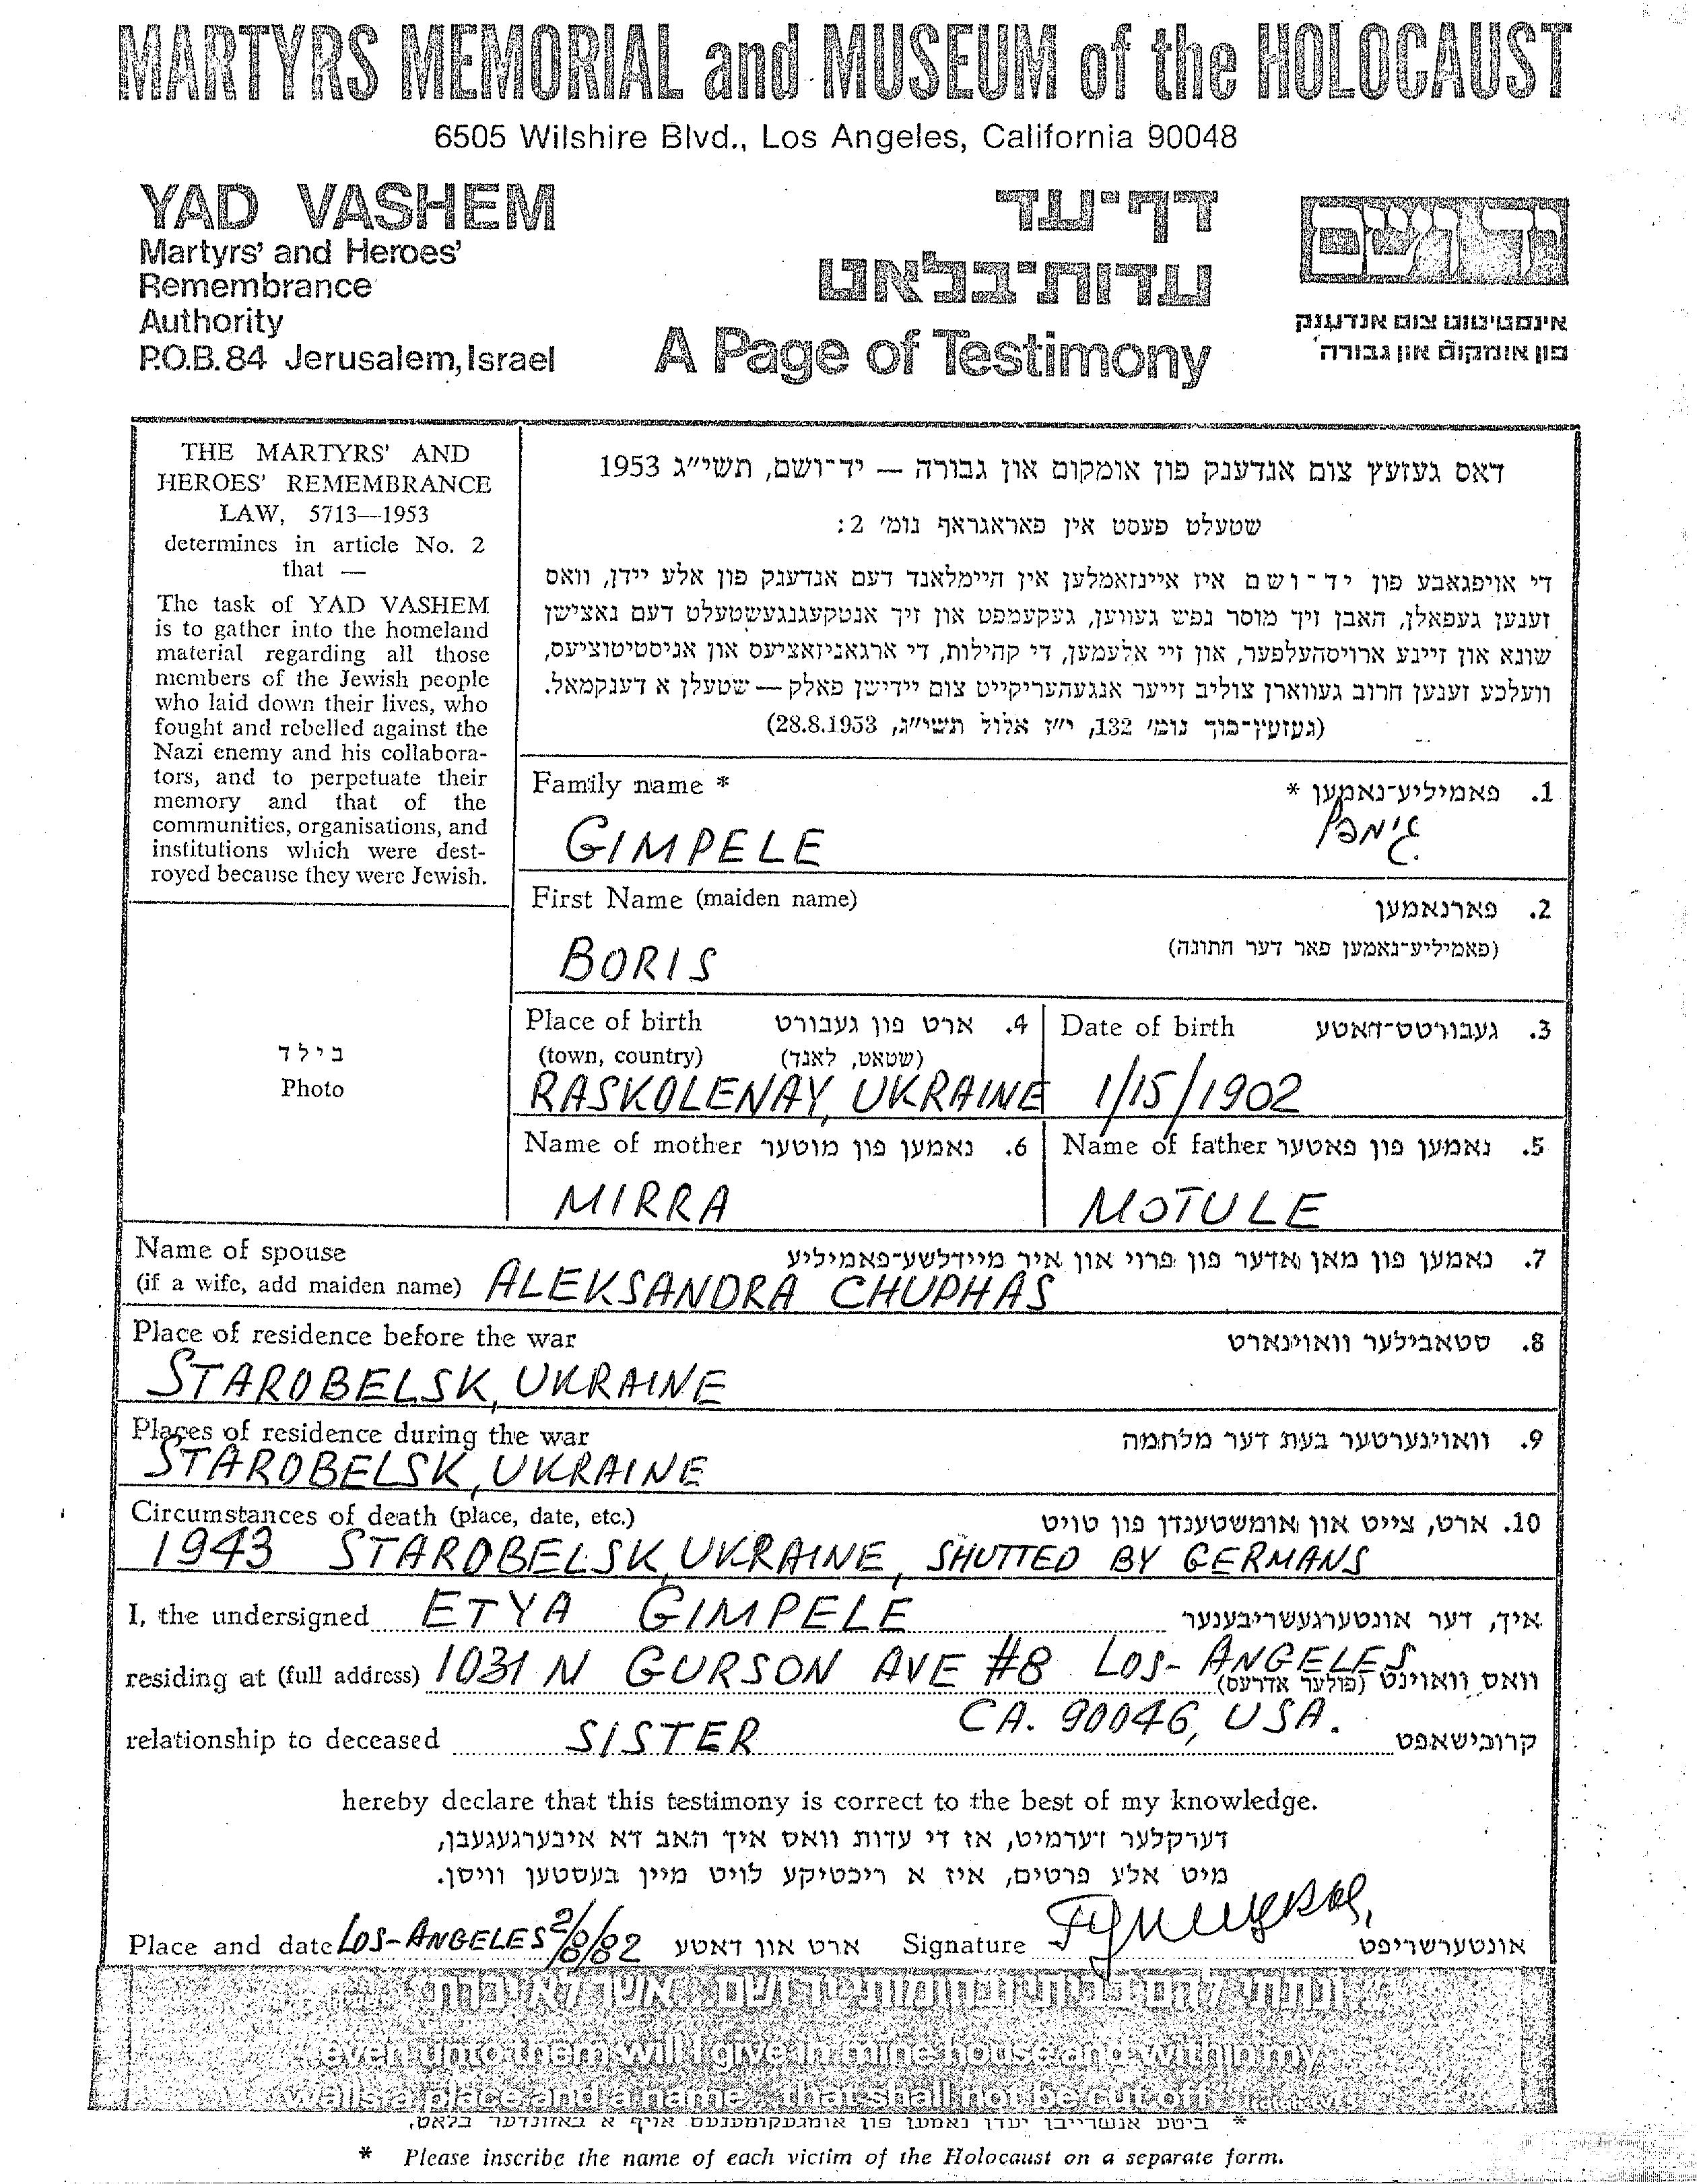 MARTYRS MEMORIAL and MUSEUM of the HOLOCAUST
6505 Wilshire Blvd., Los Angeles, California 90048
YAD VASHEM
Martyrs' and Heroes'
Remembrance
Authority
P.O.B. 84 Jerusalem, Israel
דף־עד
עדות־בלאט
A Page of Testimony
יד ושם
אינסטיטוט צום אנדענק
פון אומקום און גבורה
THE MARTYRS' AND
HEROES' REMEMBRANCE
LAW, 5713—1953
determines in article No. 2
that —
The task of YAD VASHEM
is to gather into the homeland
material regarding all those
members of the Jewish people
who laid down their lives, who
fought and rebelled against the
Nazi enemy and his collabora-
tors, and to perpetuate their
memory and that of the
communities, organisations, and
institutions which were dest-
royed because they were Jewish.
דאס געזעץ צום אנדענק פון אומקום און גבורה — יד־ושם, תשי״ג 1953
שטעלט פעסט אין פאראגראף נומ׳ 2:
די אויפגאבע פון יד־ושם איז איינזאמלען אין היימלאנד דעם אנדענק פון אלע יידן, וואס
זענען געפאלן, האבן זיך מוסר נפש געווען, געקעמפט און זיך אנטקעגנגעשטעלט דעם נאצישן
שונא און זיינע ארויסהעלפער, און זיי אלעמען, די קהילות, די ארגאניזאציעס און אניסטיטוציעס,
וועלכע זענען חרוב געווארן צוליב זייער אנגעהעריקייט צום יידישן פאלק — שטעלן א דענקמאל.
(געזעץ־בוך נומ׳ 132, י״ז אלול תשי״ג, 28.8.1953)
Family name * פאמיליע־נאמען * .1
GIMPELE גימפל
First Name (maiden name) פארנאמען .2
(פאמיליע־נאמען פאר דער חתונה)
BORIS
Place of birth ארט פון געבורט .4
(town, country) (שטאט, לאנד)
RASKOLENAY, UKRAINE
Date of birth געבורטס־דאטע .3
1/15/1902
Name of mother נאמען פון מוטער .6
MIRRA
Name of father נאמען פון פאטער .5
MOTULE
בילד
Photo
Name of spouse נאמען פון מאן אדער פון פרוי און איר מיידלשע־פאמיליע .7
(if a wife, add maiden name) ALEKSANDRA CHUPHAS
Place of residence before the war סטאבילער וואוינארט .8
STAROBELSK, UKRAINE
Places of residence during the war וואוינערטער בעת דער מלחמה .9
STAROBELSK, UKRAINE
Circumstances of death (place, date, etc.) ארט, צייט און אומשטענדן פון טויט .10
1943 STAROBELSK, UKRAINE, SHUTTED BY GERMANS
I, the undersigned ETYA GIMPELE איך, דער אונטערגעשריבענער
residing at (full address) 1031 N GURSON AVE #8 LOS-ANGELES וואס וואוינט (פולער אדרעס)
CA. 90046, USA.
relationship to deceased SISTER קרובישאפט
hereby declare that this testimony is correct to the best of my knowledge.
דערקלער דערמיט, אז די עדות וואס איך האב דא איבערגעגעבן,
מיט אלע פרטים, איז א ריכטיקע לויט מיין בעסטען וויסן.
Place and date LOS-ANGELES 2/8/82 ארט און דאטע Signature אונטערשריפט
ונתתי להם בביתי ובחומותי יד ושם... אשר לא יכרת
...even unto them will I give in mine house and within my
walls a place and a name... that shall not be cut off
* ביטע אנשרייבן יעדן נאמען פון אומגעקומענעם אויף א באזונדער בלאט.
* Please inscribe the name of each victim of the Holocaust on a separate form.